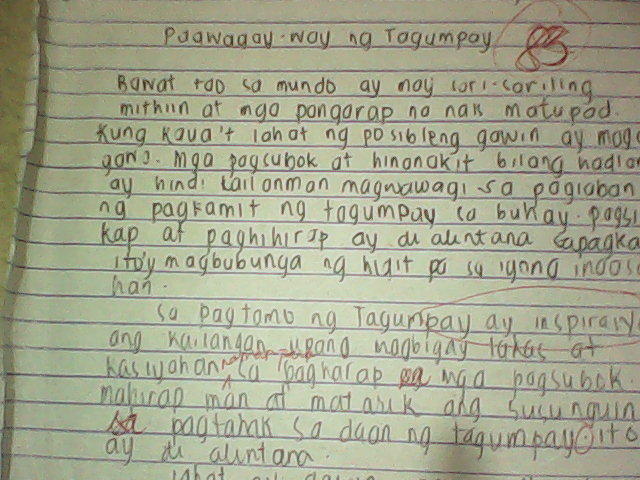 Pagwagay-way ng Tagumpay 83
Bawat tao sa mundo ay may sari-sariling
mithiin at mga pangarap na nais matupad.
Kung kaya't lahat ng posibleng gawin ay mag
gawa. Mga pagsubok at hinanakit bilang hadla
ay hindi kailanman magwawagi sa paglaban
ng pagkamit ng tagumpay sa buhay. Pagsi
kap at paghihirap ay di alintana sapagka
ito'y magbubunga ng higit pa sa iyong inaasa
han.
Sa pagtamo ng Tagumpay ay inspirasy
ang kailangan upang magbigay lakas at
kasiyahan sa pagharap sa mga pagsubok
mahirap man at matarik ang susunguin
sa pagtahak sa daan ng tagumpay, ito
ay di alintana.
lahat